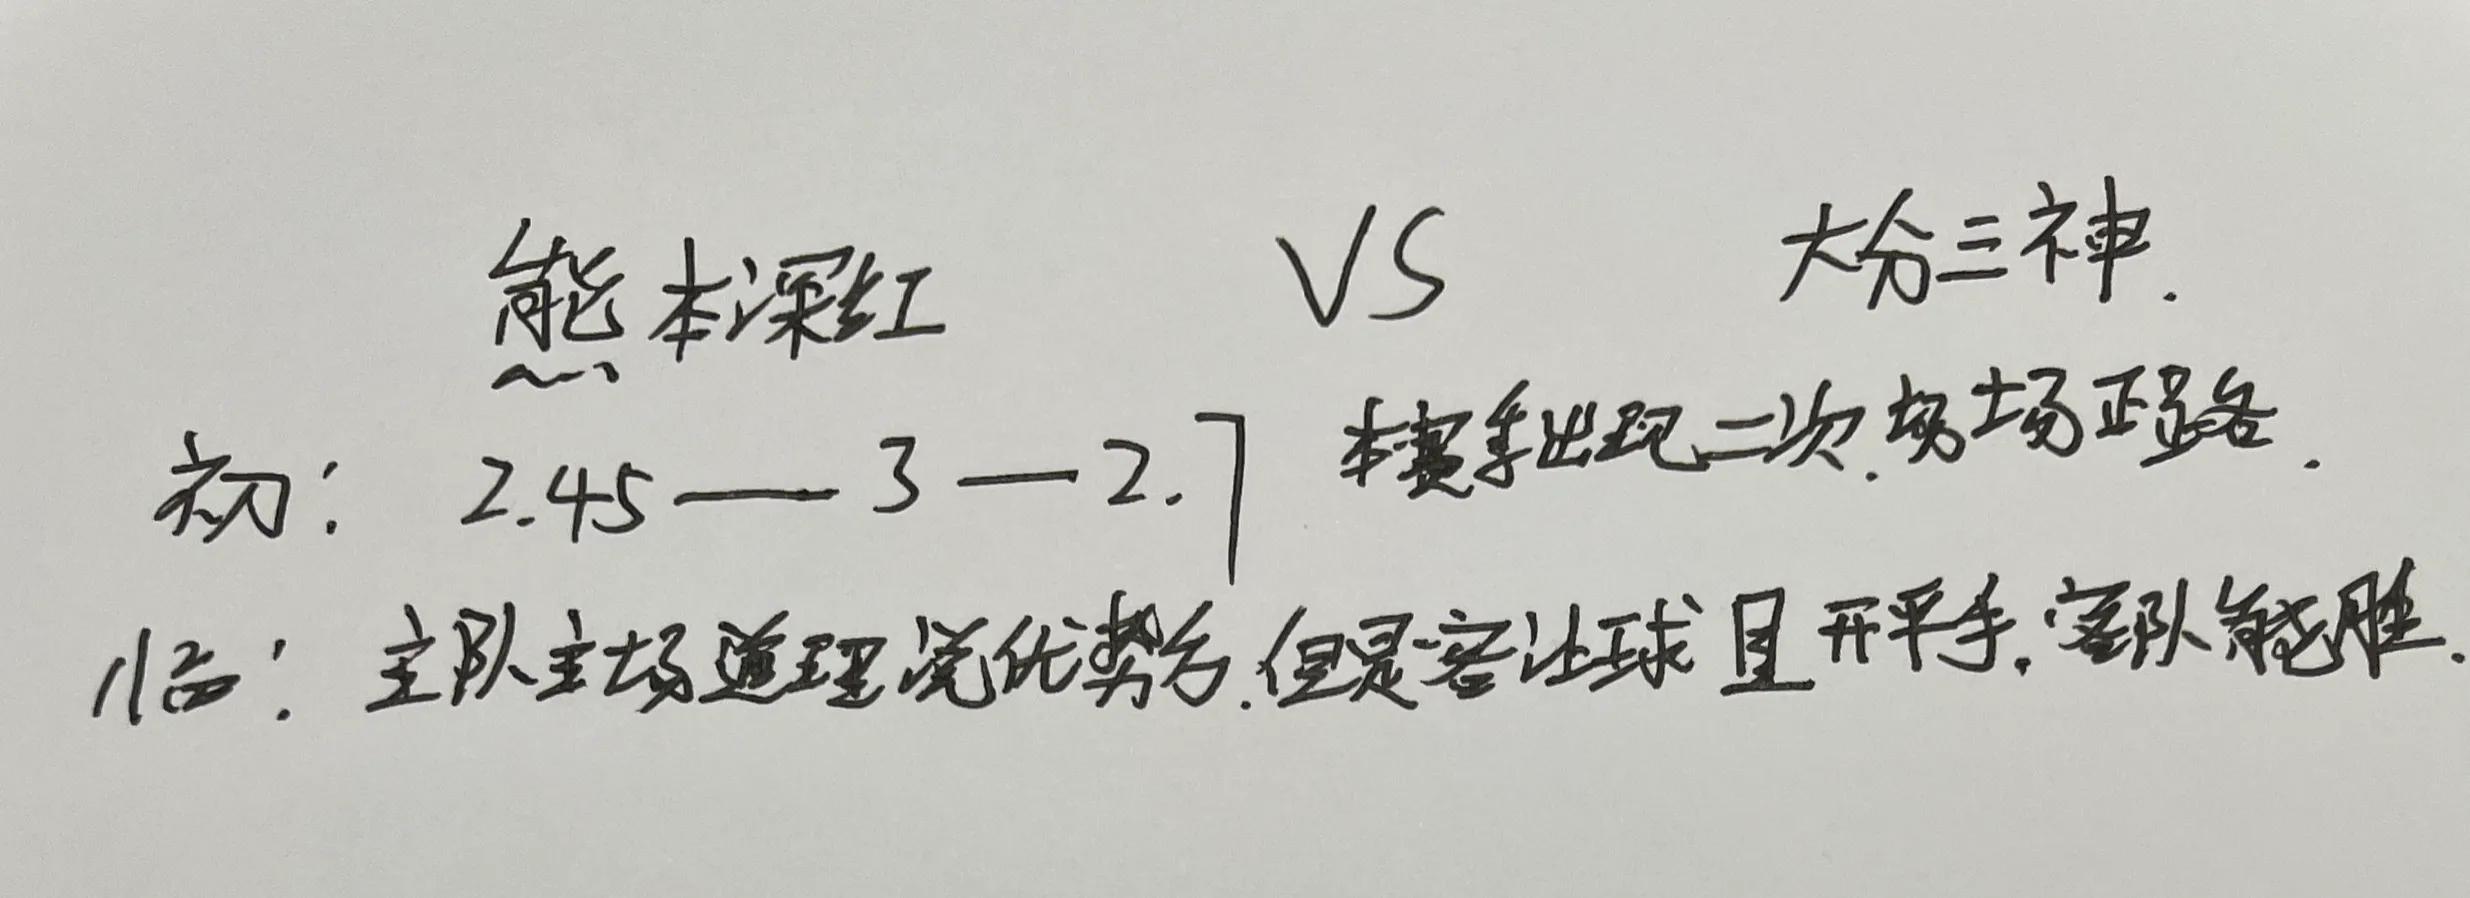 熊本深红 VS 大分三神.
初: 2.45—3—2.7 本赛季出现二次.场场正路.
临: 主队主场道理说优势方.但是客让球且开平手.客队能胜.